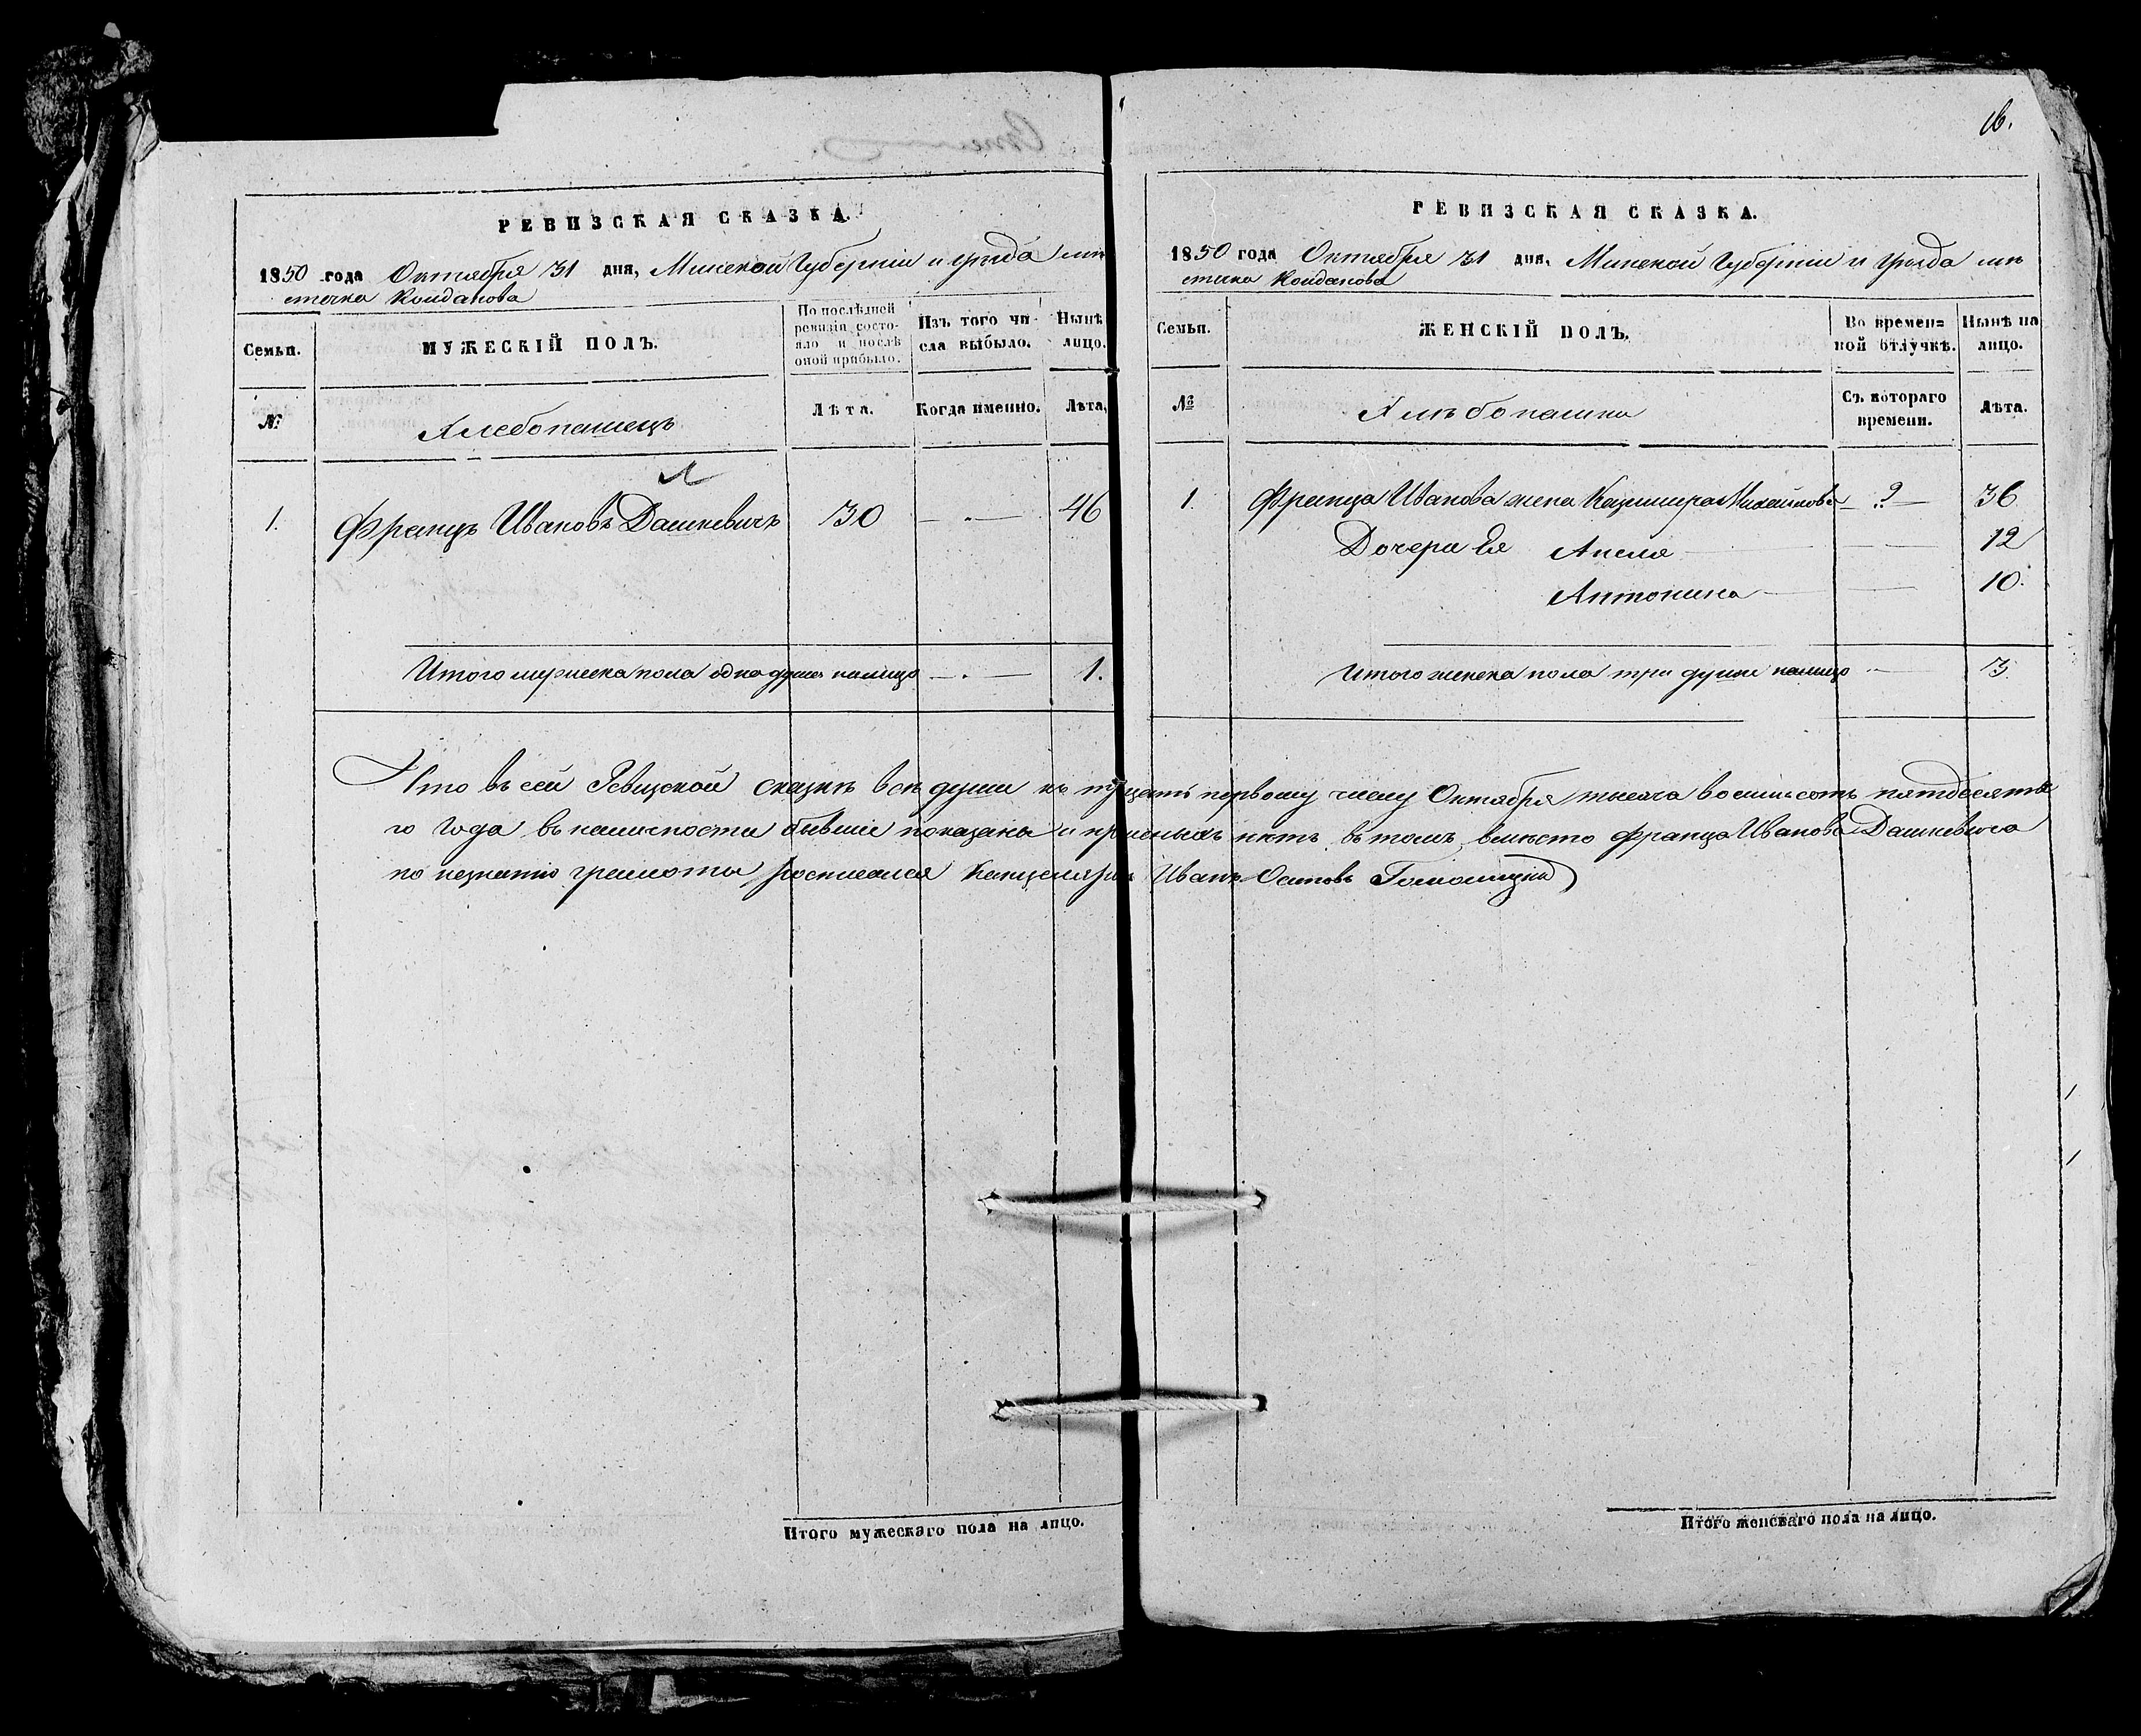 РЕВИЗСКАЯ СКАЗКА.
1850 года Октября 31 дня, Минской Губерніи и уѣзда мѣ
стечка Койданова
Семьи.
МУЖЕСКІЙ ПОЛЪ.
По послѣдней ревизіи состо-
яло и послѣ оной прибыло.
Изъ того чи-
сла выбыло.
Нынѣ
лицо.
№
Хлебопашецъ
Лѣта.
Когда именно.
Лѣта,
1. Францъ Ивановъ Дашкевичъ 30 46
Итого мужеска пола одна душа налицо 1.
16.
РЕВИЗСКАЯ СКАЗКА.
1850 года Октября 31 дня, Минской Губерніи и уѣзда мѣ
стечка Койданова
Семьи.
ЖЕНСКІЙ ПОЛЪ.
Во времен=
ной отлучкѣ.
Нынѣ на
лицо.
№
Хлѣбопашца
Съ котораго
времени.
Лѣта.
1. Франца Иванова жена Казимира Михайлова ? 36
Дочери Ея Анеля 12
Антонина 10.
Итого женска пола три души налицо 3.
Что въ сей Ревизской сказкѣ всѣ души къ тридцать первому числу Октября тысяча восемьсотъ пятдесята
го Года въ наличности бывшіе показаны и нѣтъ въ томъ вмѣсто Франца Иванова Дашкевича
по незнанію грамоты росписался Иванъ Осиповъ
Итого мужескаго пола на лицо.
Итого женскаго пола на лицо.